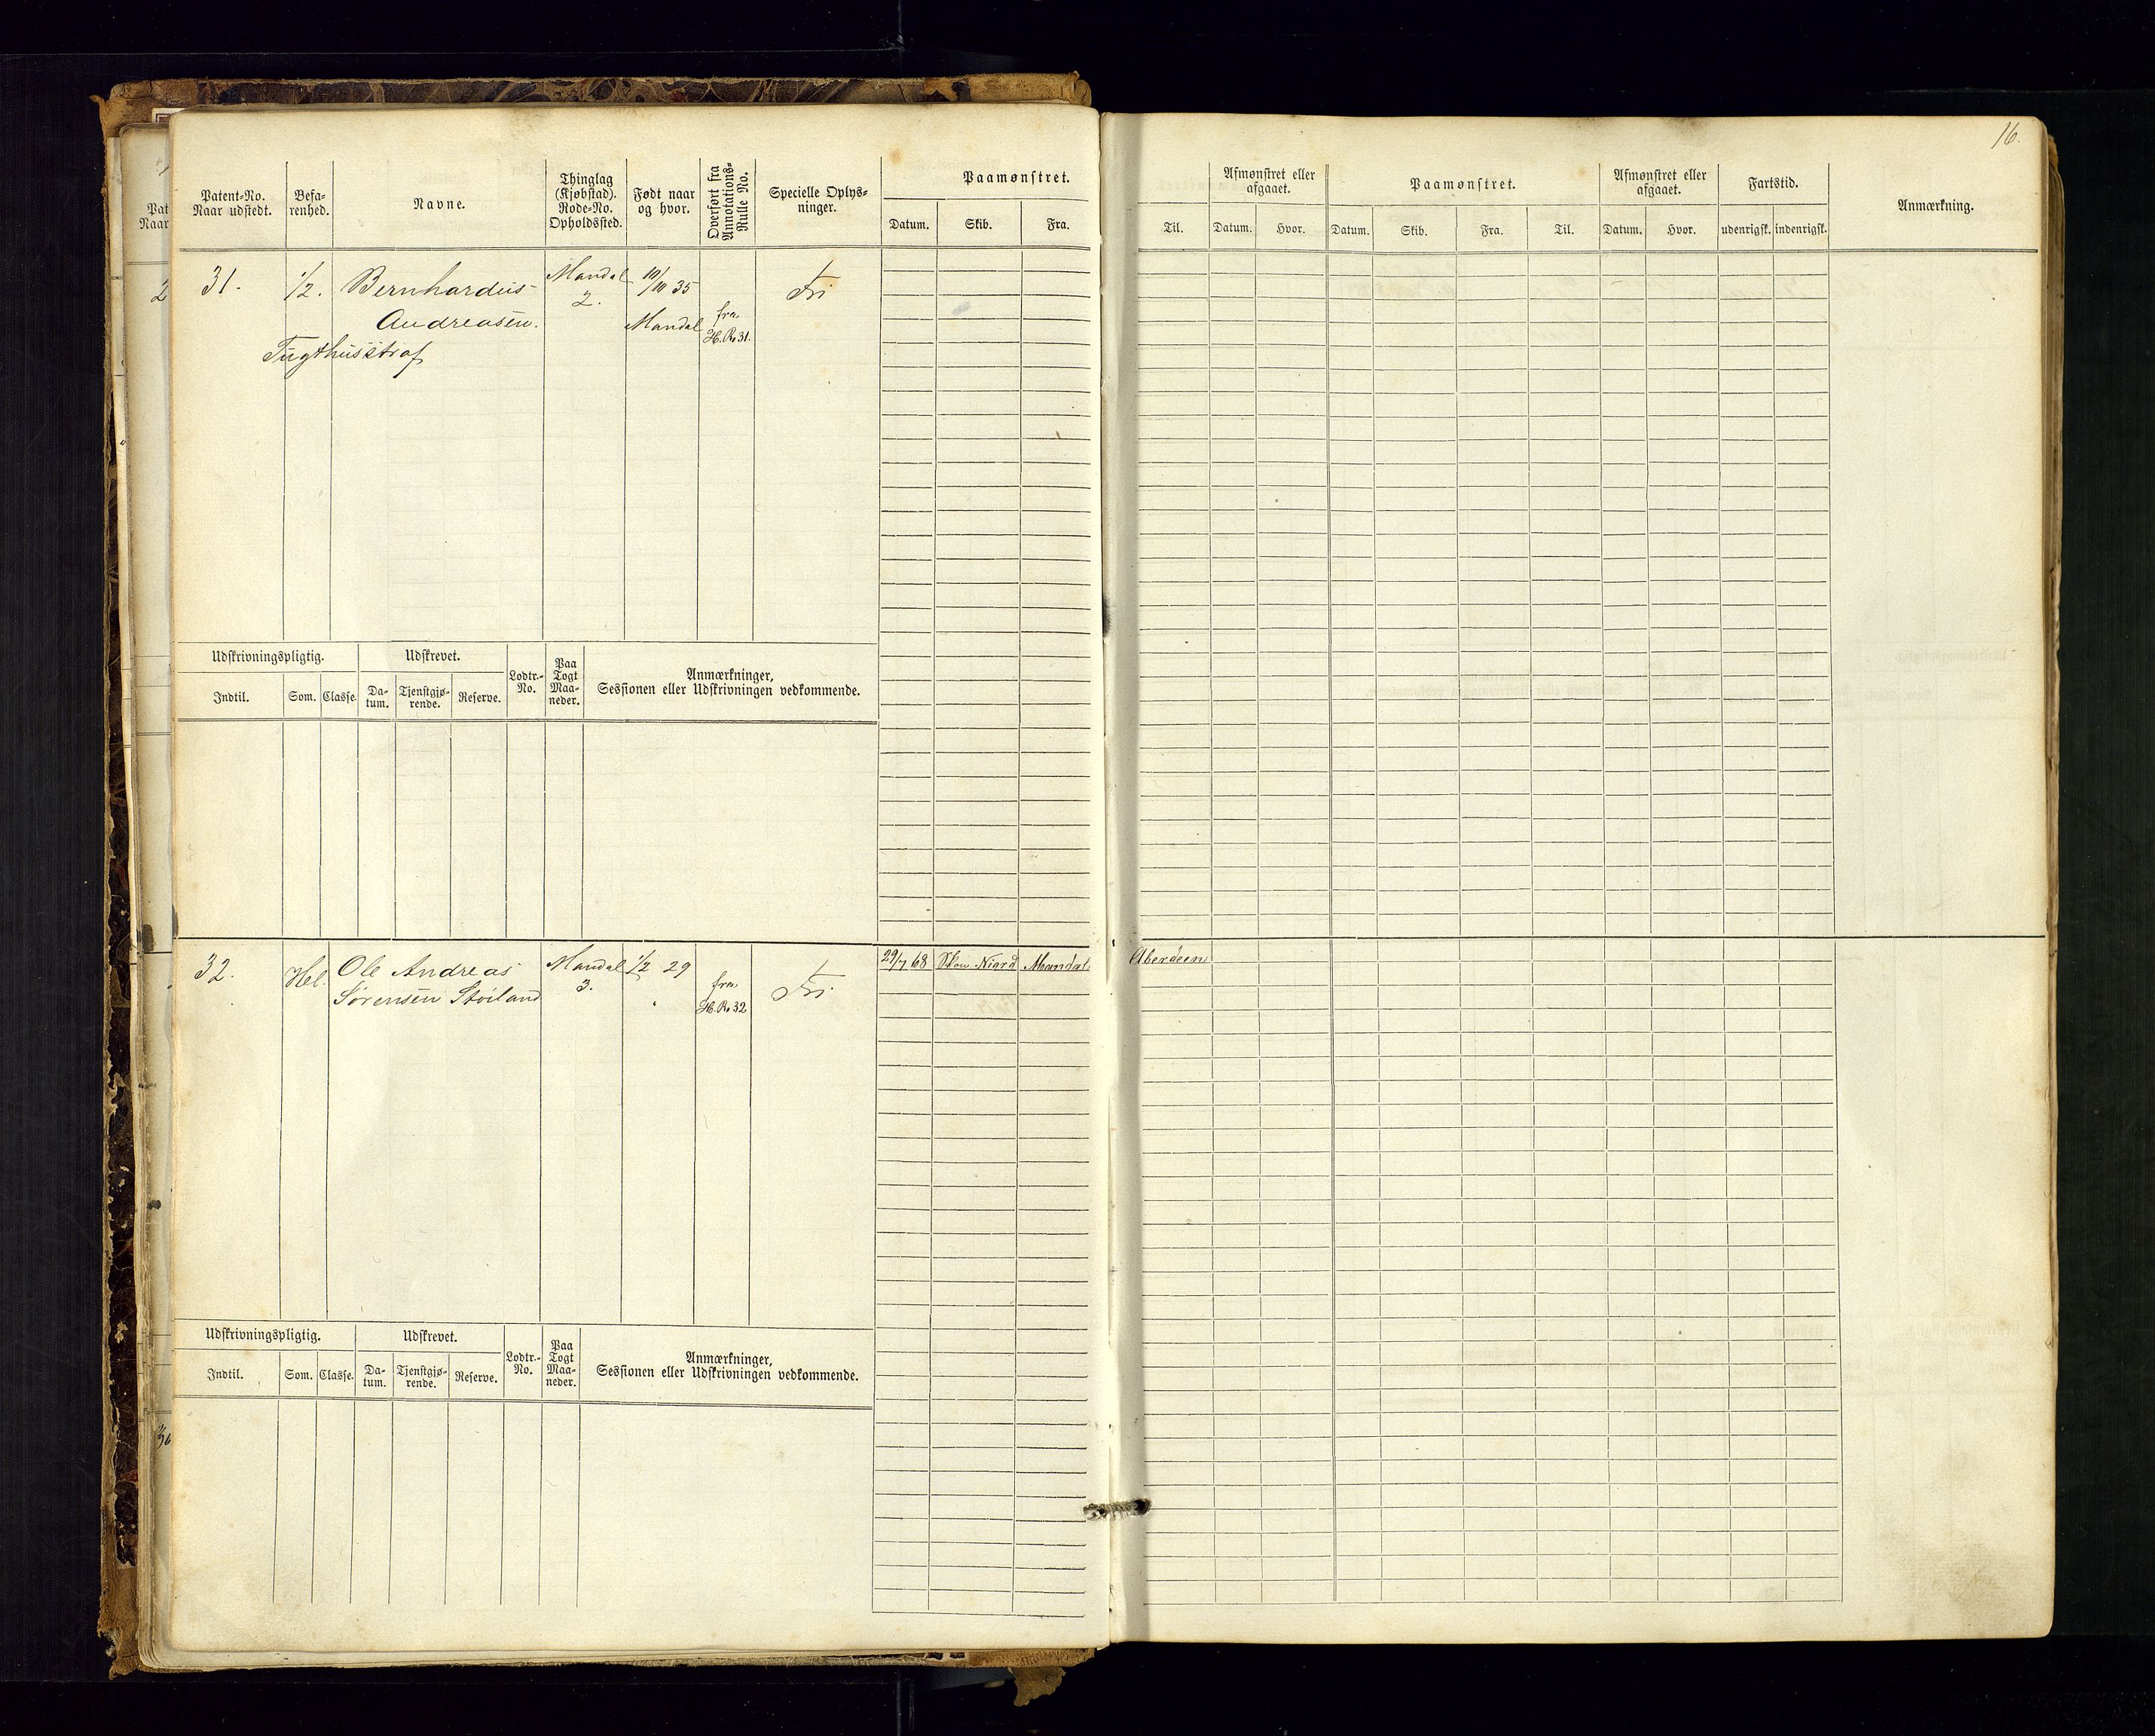 16.
Patent-No. Naar udstedt.
Befa-renhed.
Navne.
Thinglag (Kjøbstad). Rode-No. Opholdssted.
Født naar og hvor.
Overført fra Annotations-Rulle No.
Specielle Oplys-ninger.
Paamønstret.
Datum. Skib. Fra.
Til.
Afmønstret eller afgaaet.
Datum. Hvor.
Paamønstret.
Datum. Skib. Fra. Til.
Afmønstret eller afgaaet.
Datum. Hvor.
Fartstid.
udenrigsk. indenrigsk.
Anmærkning.
31. 1/2. Bernhardus Mandal 10/10 35 Fri
Andreasen. 2. Mandal fra H.R. 31.
Tugthusstraf
Udskrivningspligtig.
Indtil. Som. Classe.
Udskrevet.
Da-tum. Tjenstgjø-rende. Reserve.
Lodtr.-No.
Paa Togt Maa-neder.
Anmærkninger,
Sessionen eller Udskrivningen vedkommende.
32. Hel. Ole Andreas Mandal 1/2 29 Fri 29/7 68 Niord Mandal Aberdeen
Sørensen Støiland 3. fra H.R. 32
Udskrivningspligtig.
Indtil. Som. Classe.
Udskrevet.
Da-tum. Tjenstgjø-rende. Reserve.
Lodtr.-No.
Paa Togt Maa-neder.
Anmærkninger,
Sessionen eller Udskrivningen vedkommende.